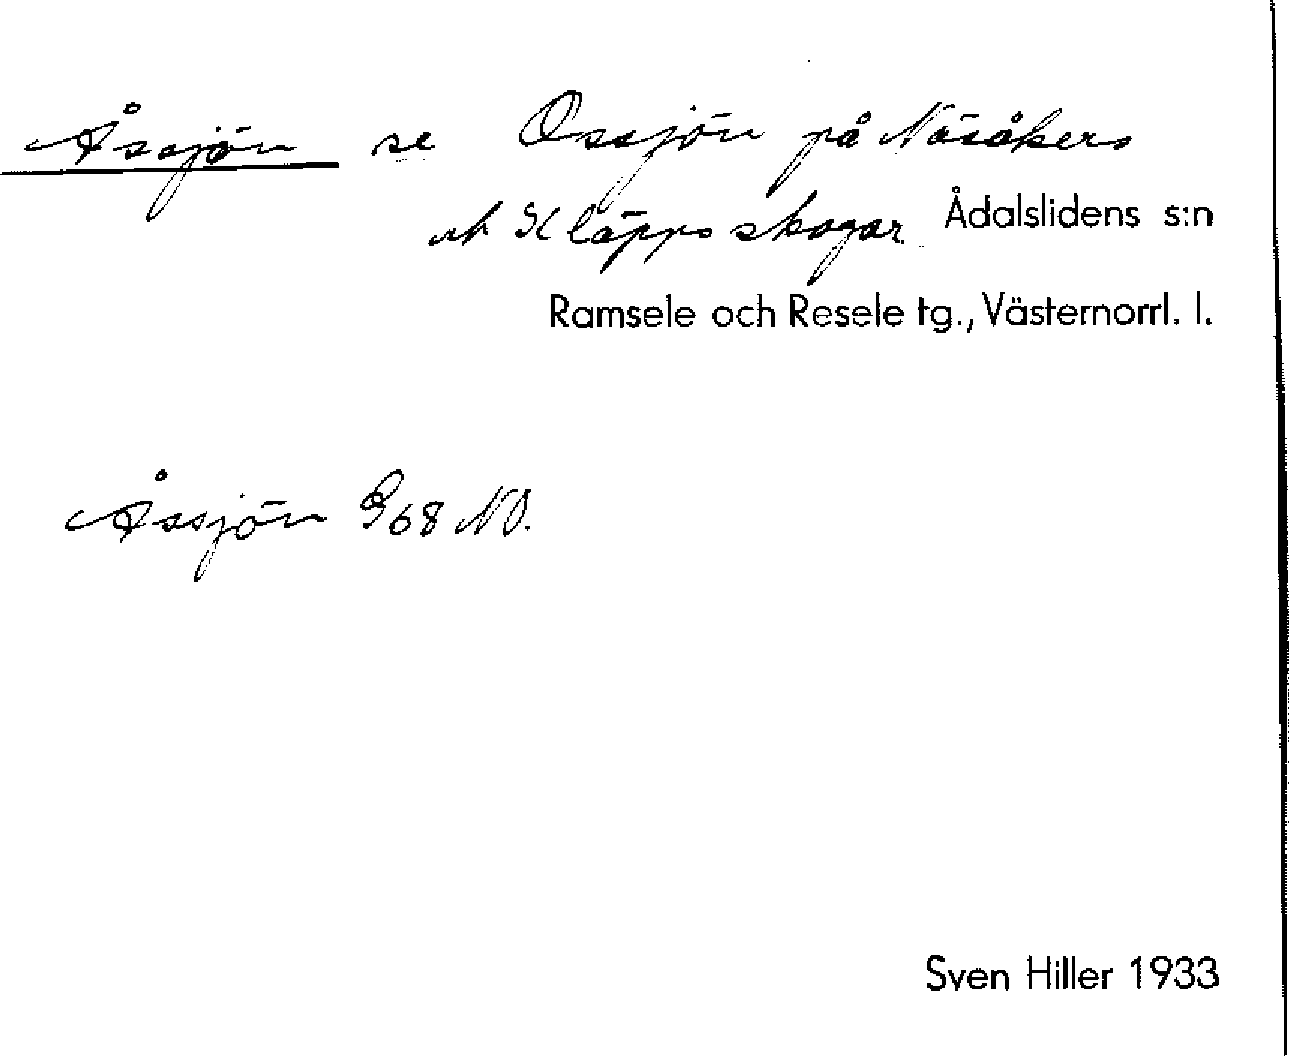 Åssjön se Ossjön på Näsåkers
och Kläpps skogar Ådalslidens s:n
Ramsele och Resele tg., Västernorrl. l.
Åssjön G68 NO.
Sven Hiller 1933